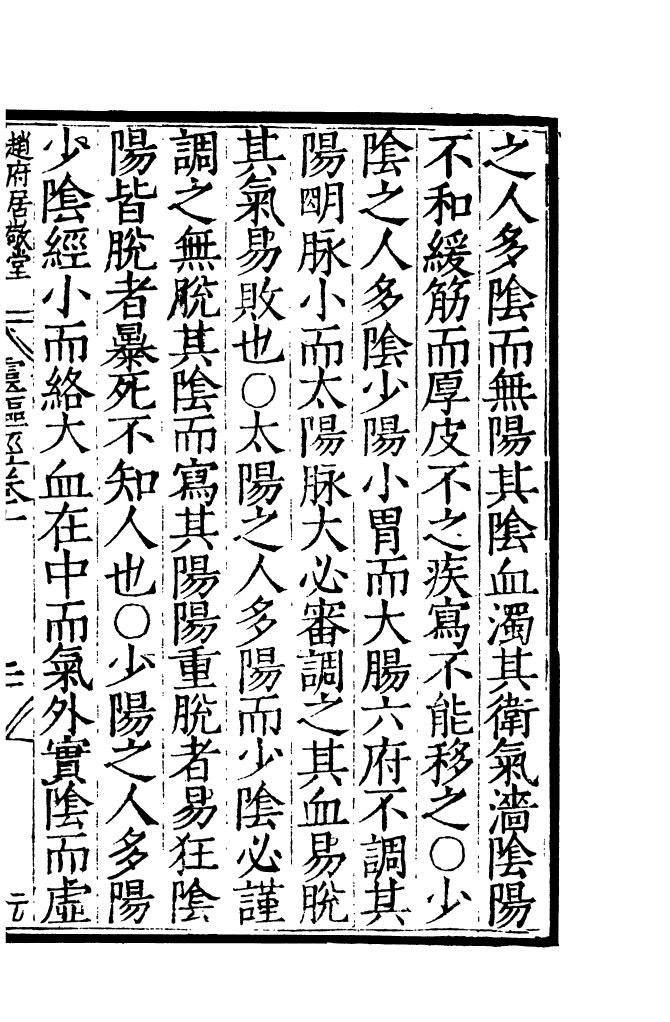 之人多陰而無陽其陰血濁其衛氣濇陰陽
不和緩筋而厚皮不之疾寫不能移之○少
陰之人多陰少陽小胃而大腸六府不調其
陽朙脉小而太陽脉大必審調之其血易脫
其氣易敗也○太陽之人多陽而少陰必謹
調之無脫其陰而寫其陽陽重脫者易狂陰
陽皆脫者暴死不知人也○少陽之人多陽
少陰經小而絡大血在中而氣外實陰而虛
趙府居敬堂 靈樞經卷